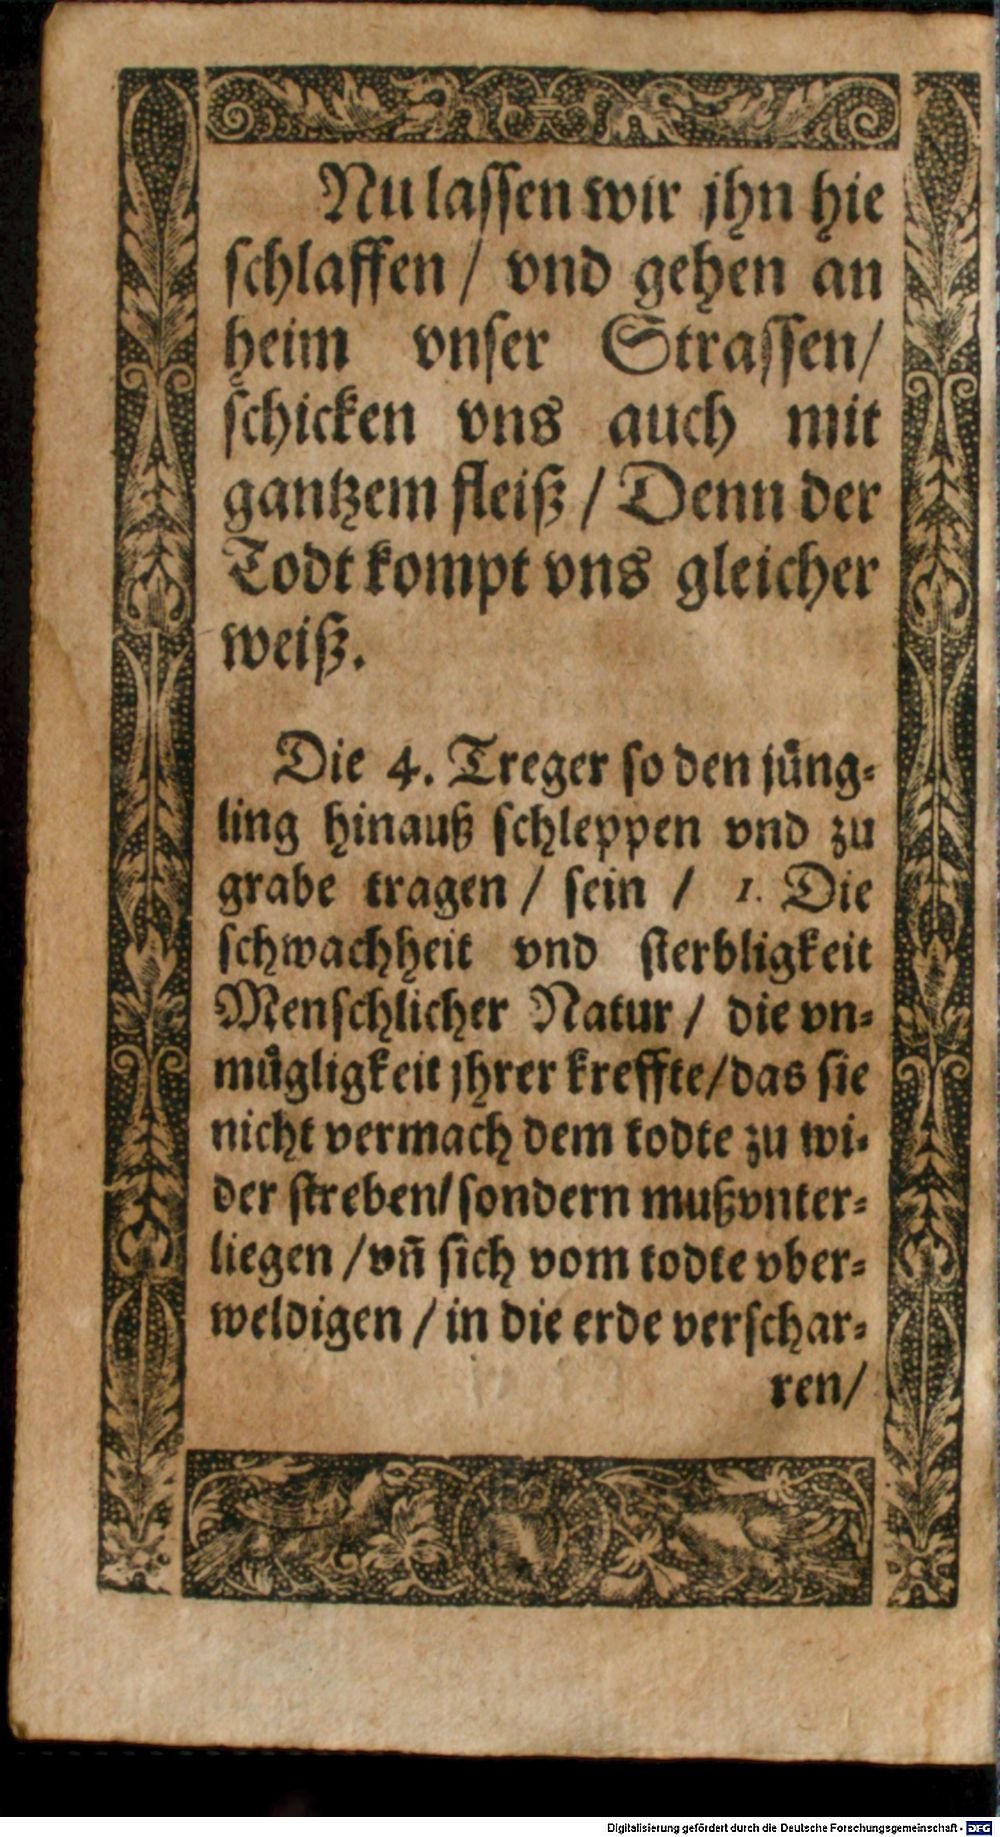 Nu lassen wir jhn hie
schlaffen / vnd gehen an
heim vnser Strassen/
schicken vns auch mit
gantzem fleiß / Denn der
Todt kompt vns gleicher
weiß.
Die 4. Treger so den jüng-
ling hinauß schleppen vnd zu
grabe tragen / sein / 1. Die
schwachheit vnd sterbligkeit
Menschlicher Natur / die vn-
mügligkeit jhrer kreffte/das sie
nicht vermach dem todte zu wi-
der streben/sondern muß vnter-
liegen /vñ sich vom todte vber-
weldigen / in die erde verschar-
ren/
Digitalisierung gefördert durch die Deutsche Forschungsgemeinschaft - DFG